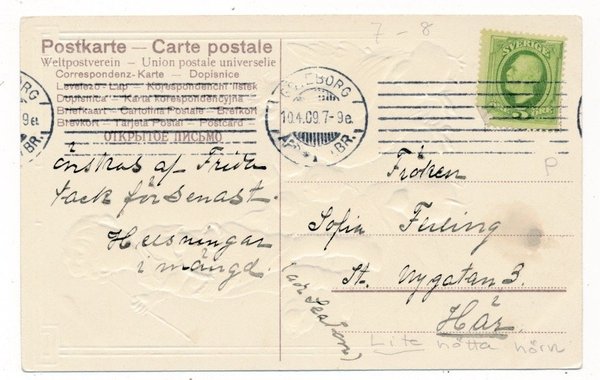 7-8
Postkarte — Carte postale
Weltpostverein — Union postale universelle
Correspondenz-Karte — Dopisnice
Levelező-Lap — Korespondenční lístek
Dopisnica — Karta korespondencyjna
Brefkaart — Cartolina postale — Brefkort
Brevkort — Tarjeta Postal — Postcard
ОТКРЫТОЕ ПИСЬМО
SVERIGE
GÖTEBORG
10.4.09 7-9 e.
AFG. 1 BR.
önskas af Frida
tack för senast.
Hälsningar
i mängd.
Fröken
Sofia Feiling
St. Nygatan 3.
Här.
P
Lite nötta hörn